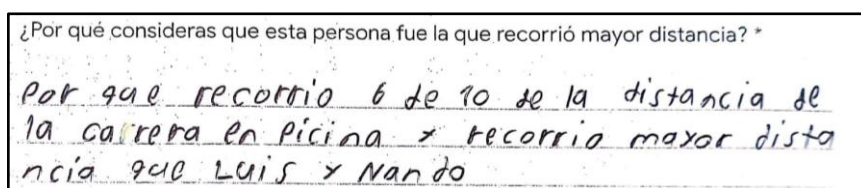 ¿Por qué consideras que esta persona fue la que recorrió mayor distancia? *
Por que recorrio 6 de 10 de la distancia de
la carrera en Picina y recorrio mayor dista
ncia que Luis y Nando